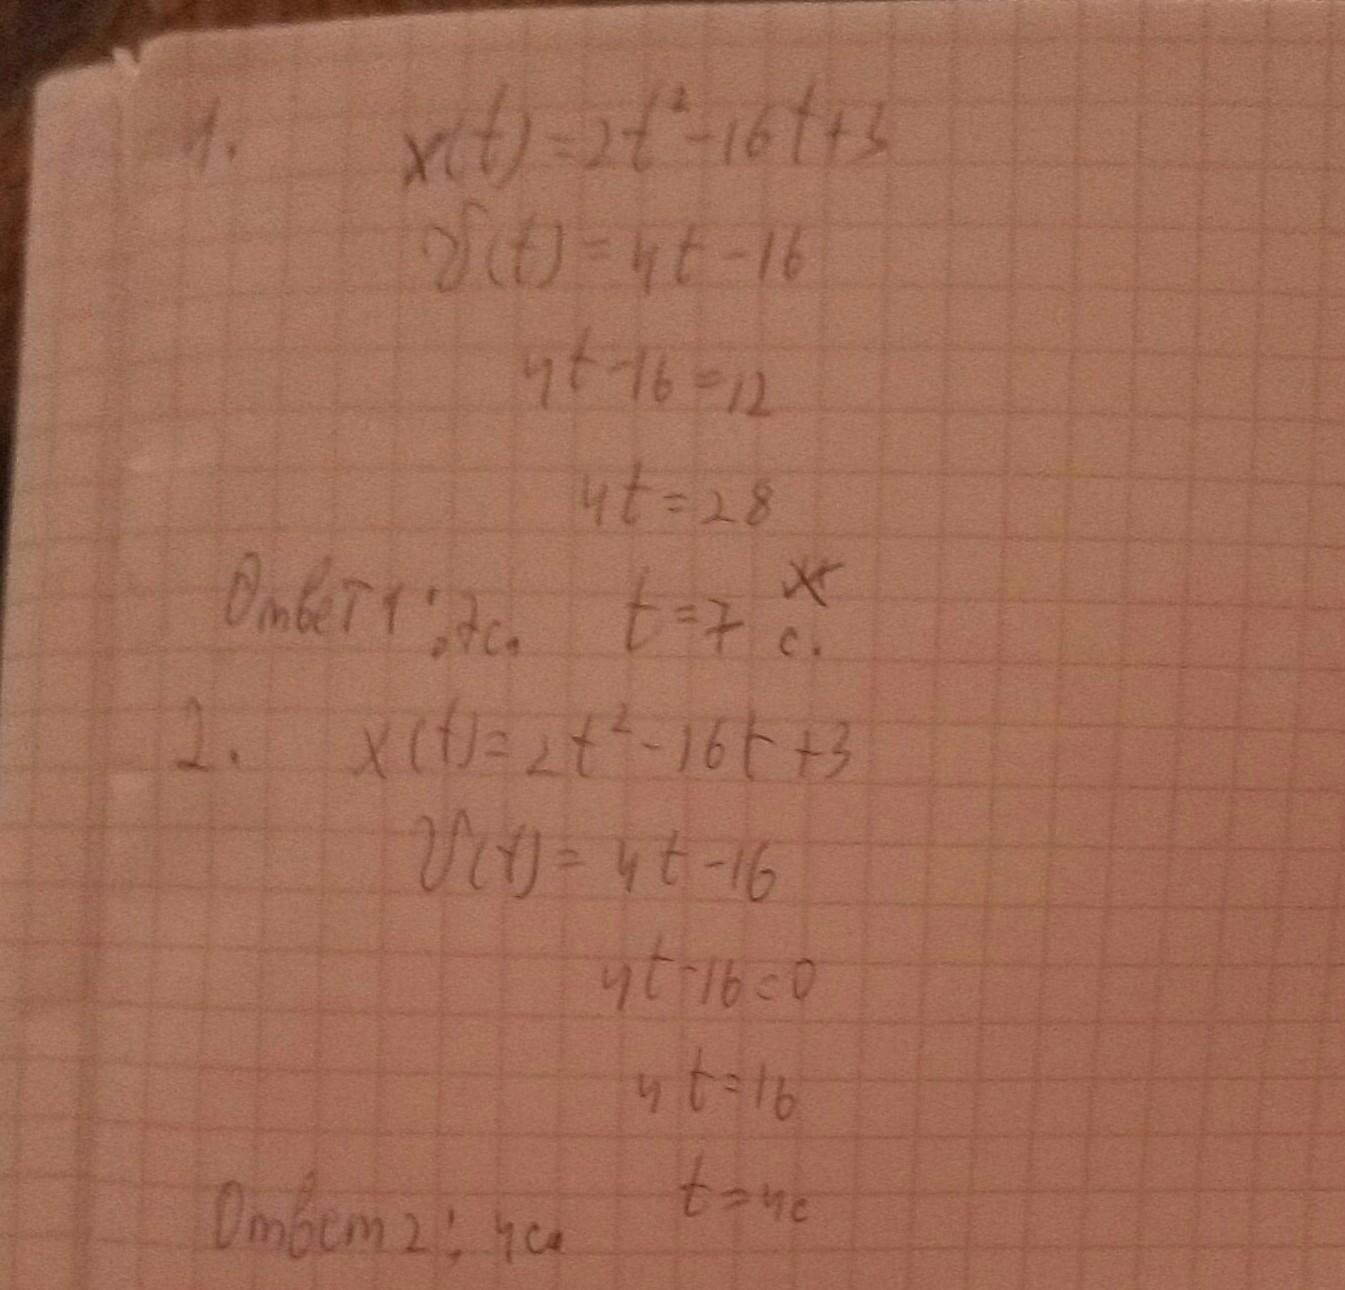 1. x(t)=2t²-16t+3
v(t)=4t-16
4t-16=12
4t=28
Ответ1: 7с. t=7 с.
2. x(t)=2t²-16t+3
v(t)=4t-16
4t-16=0
4t=16
t=4с
Ответ2: 4с.